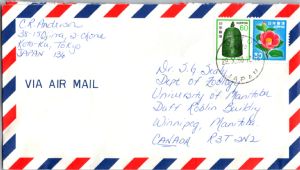 C.R. Anderson
2-Chome
Koto-Ku, Tokyo
JAPAN 136
60
30
JAPAN
VIA AIR MAIL
Dr. J.G.
Dept of Zoology
University of Manitoba
Duff Roblin Building
Winnipeg, Manitoba
CANADA R3T 2N2